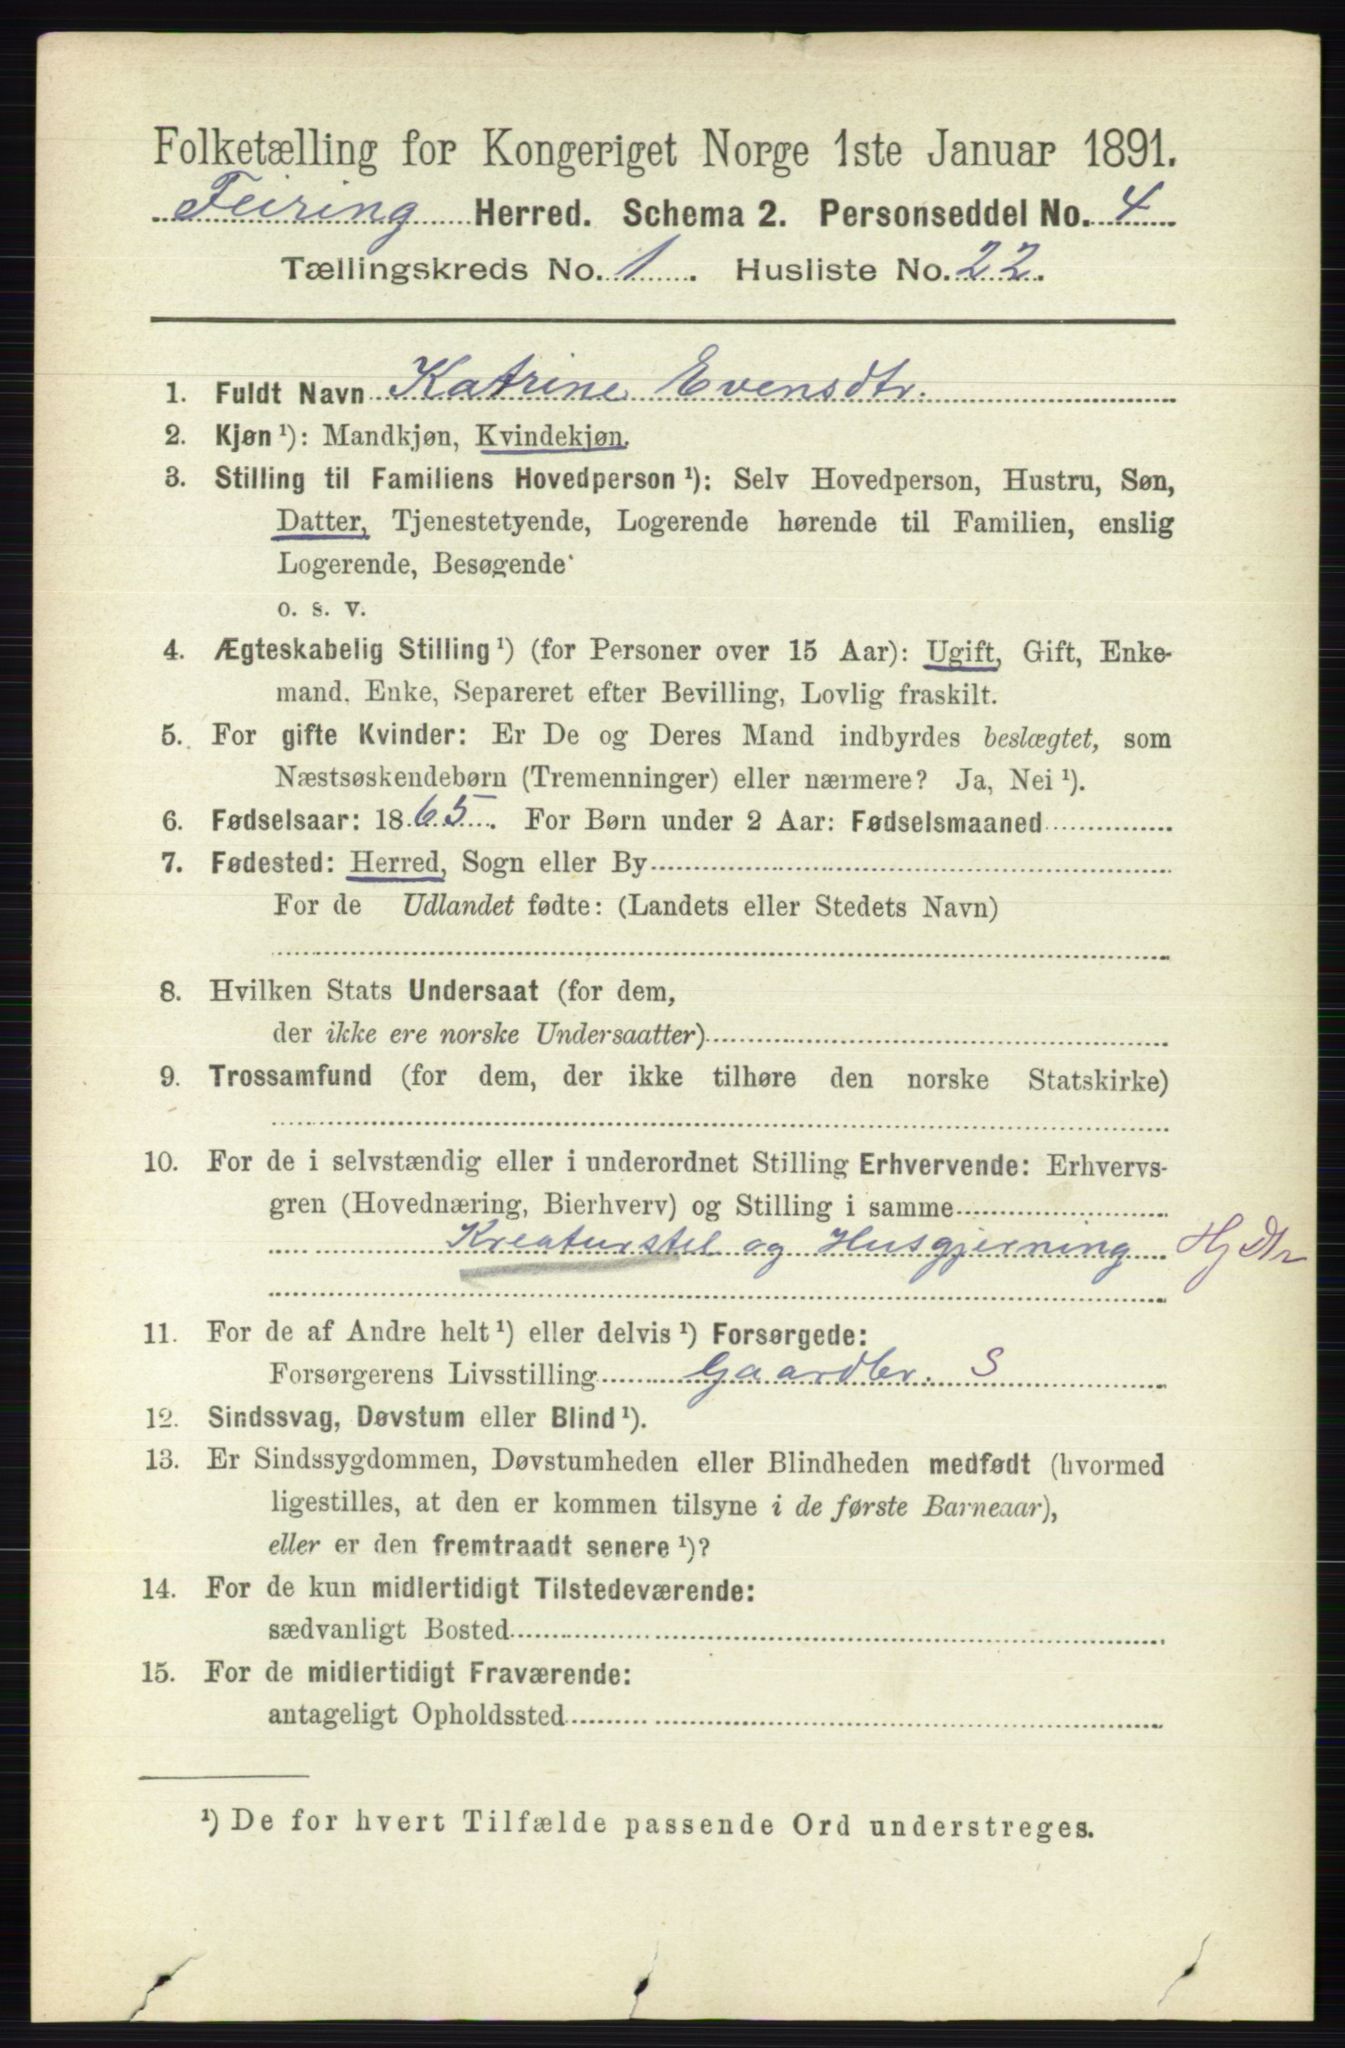 Folketælling for Kongeriget Norge 1ste Januar 1891.
Feiring Herred. Schema 2. Personseddel No. 4
Tællingskreds No. 1. Husliste No. 22.
1. Fuldt Navn Katrine Evensdtr.
2. Kjøn ¹): Mandkjøn, Kvindekjøn.
3. Stilling til Familiens Hovedperson ¹): Selv Hovedperson, Hustru, Søn,
Datter, Tjenestetyende, Logerende hørende til Familien, enslig
Logerende, Besøgende
o. s. v.
4. Ægteskabelig Stilling ¹) (for Personer over 15 Aar): Ugift, Gift, Enke-
mand, Enke, Separeret efter Bevilling, Lovlig fraskilt.
5. For gifte Kvinder: Er De og Deres Mand indbyrdes beslægtet, som
Næstsøskendebørn (Tremenninger) eller nærmere? Ja, Nei ¹).
6. Fødselsaar: 1865. For Børn under 2 Aar: Fødselsmaaned
7. Fødested: Herred, Sogn eller By
For de Udlandet fødte: (Landets eller Stedets Navn)
8. Hvilken Stats Undersaat (for dem,
der ikke ere norske Undersaatter)
9. Trossamfund (for dem, der ikke tilhøre den norske Statskirke)
10. For de i selvstændig eller i underordnet Stilling Erhvervende: Erhvervs-
gren (Hovednæring, Bierhverv) og Stilling i samme
Kreaturstel og Husgjerning Hj Dtr
11. For de af Andre helt ¹) eller delvis ¹) Forsørgede:
Forsørgerens Livsstilling Gaardbr. S
12. Sindssvag, Døvstum eller Blind ¹).
13. Er Sindssygdommen, Døvstumheden eller Blindheden medfødt (hvormed
ligestilles, at den er kommen tilsyne i de første Barneaar),
eller er den fremtraadt senere ¹)?
14. For de kun midlertidigt Tilstedeværende:
sædvanligt Bosted
15. For de midlertidigt Fraværende:
antageligt Opholdssted
¹) De for hvert Tilfælde passende Ord understreges.